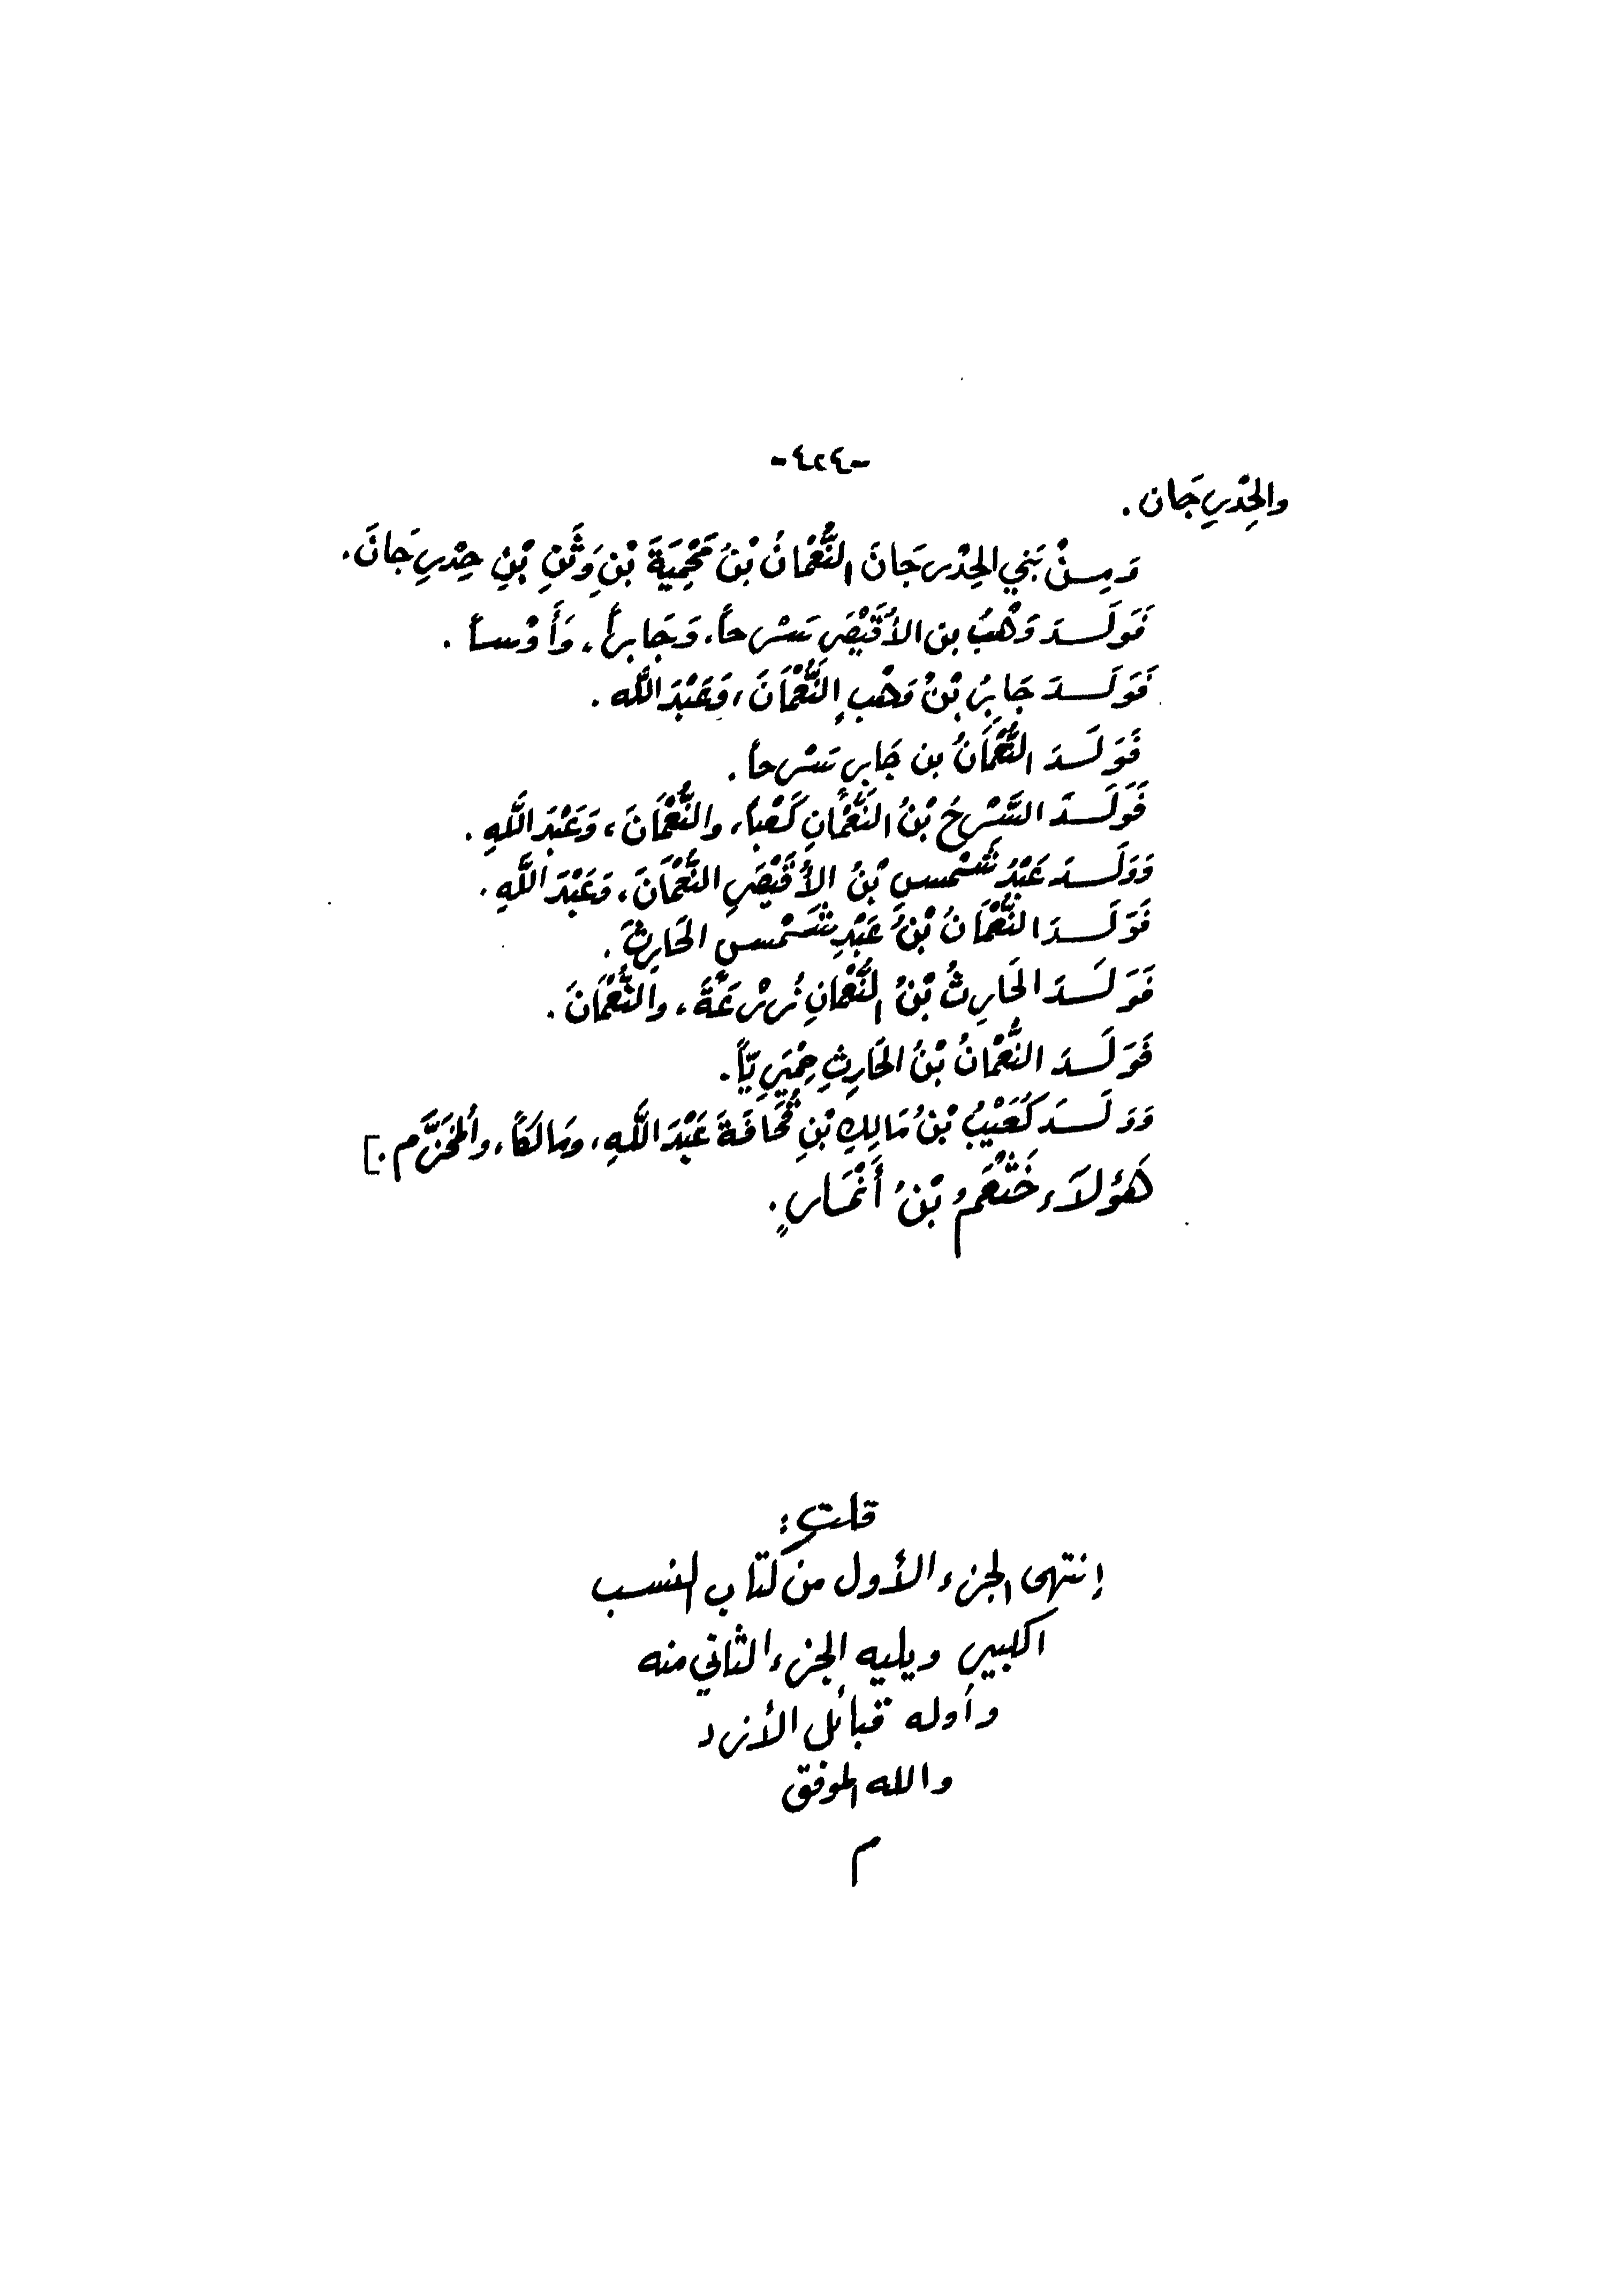 -٤٢٤-
والحِدْرِجَان .
وَمِنْ بَنِي الحِدْرِجَانَ النُّعْمَانُ بْنُ مَحْمِيَةَ بْنِ وَثَنِ بْنِ حِدْرِجَانَ .
فَوَلَدَ وَهْبُ بن الأُقَيْصَرِ سَرْحاً، وَجَابِراً، وَأَوْساً .
فَوَلَدَ جَابِرُ بْنُ وَهْبٍ النُّعْمَانَ، وَعَبْدَ اللَّه .
فَوَلَدَ النُّعْمَانُ بن جَابِرٍ سَرْحاً .
فَوَلَدَ السَّرْحُ بْنُ النُّعْمَانِ كَعْباً، والنُّعْمَانَ، وَعَبْدَ اللَّهِ .
وَوَلَدَ عَبْدُ شَمْسِ بْنُ الأُقَيْصِرِ النُّعْمَانَ، وَعَبْدَ اللَّهِ .
فَوَلَدَ النُّعْمَانُ بْنُ عَبْدِ شَمْسٍ الحَارِثَ .
فَوَلَدَ الحَارِثُ بْنُ النُّعْمَانِ زُرْعَةَ، والنُّعْمَانَ .
فَوَلَدَ النُّعْمَانُ بْنُ الحَارِثِ حِمْيَرِيّاً .
وَوَلَدَ كُعَيْبُ بْنُ مَالِكِ بْنِ قُحَافَةَ عَبْدَ اللَّهِ، ومَالكاً، والمُخَزَّم .]
هَؤُلَاءِ خَثْعَمُ بْنُ أَنْمَارٍ .
قلت :
إنتهى الجزء الأول من كتاب النسب
الكبير ويليه الجزء الثاني منه
وأوله قبائل الأزد
والله الموفق
م